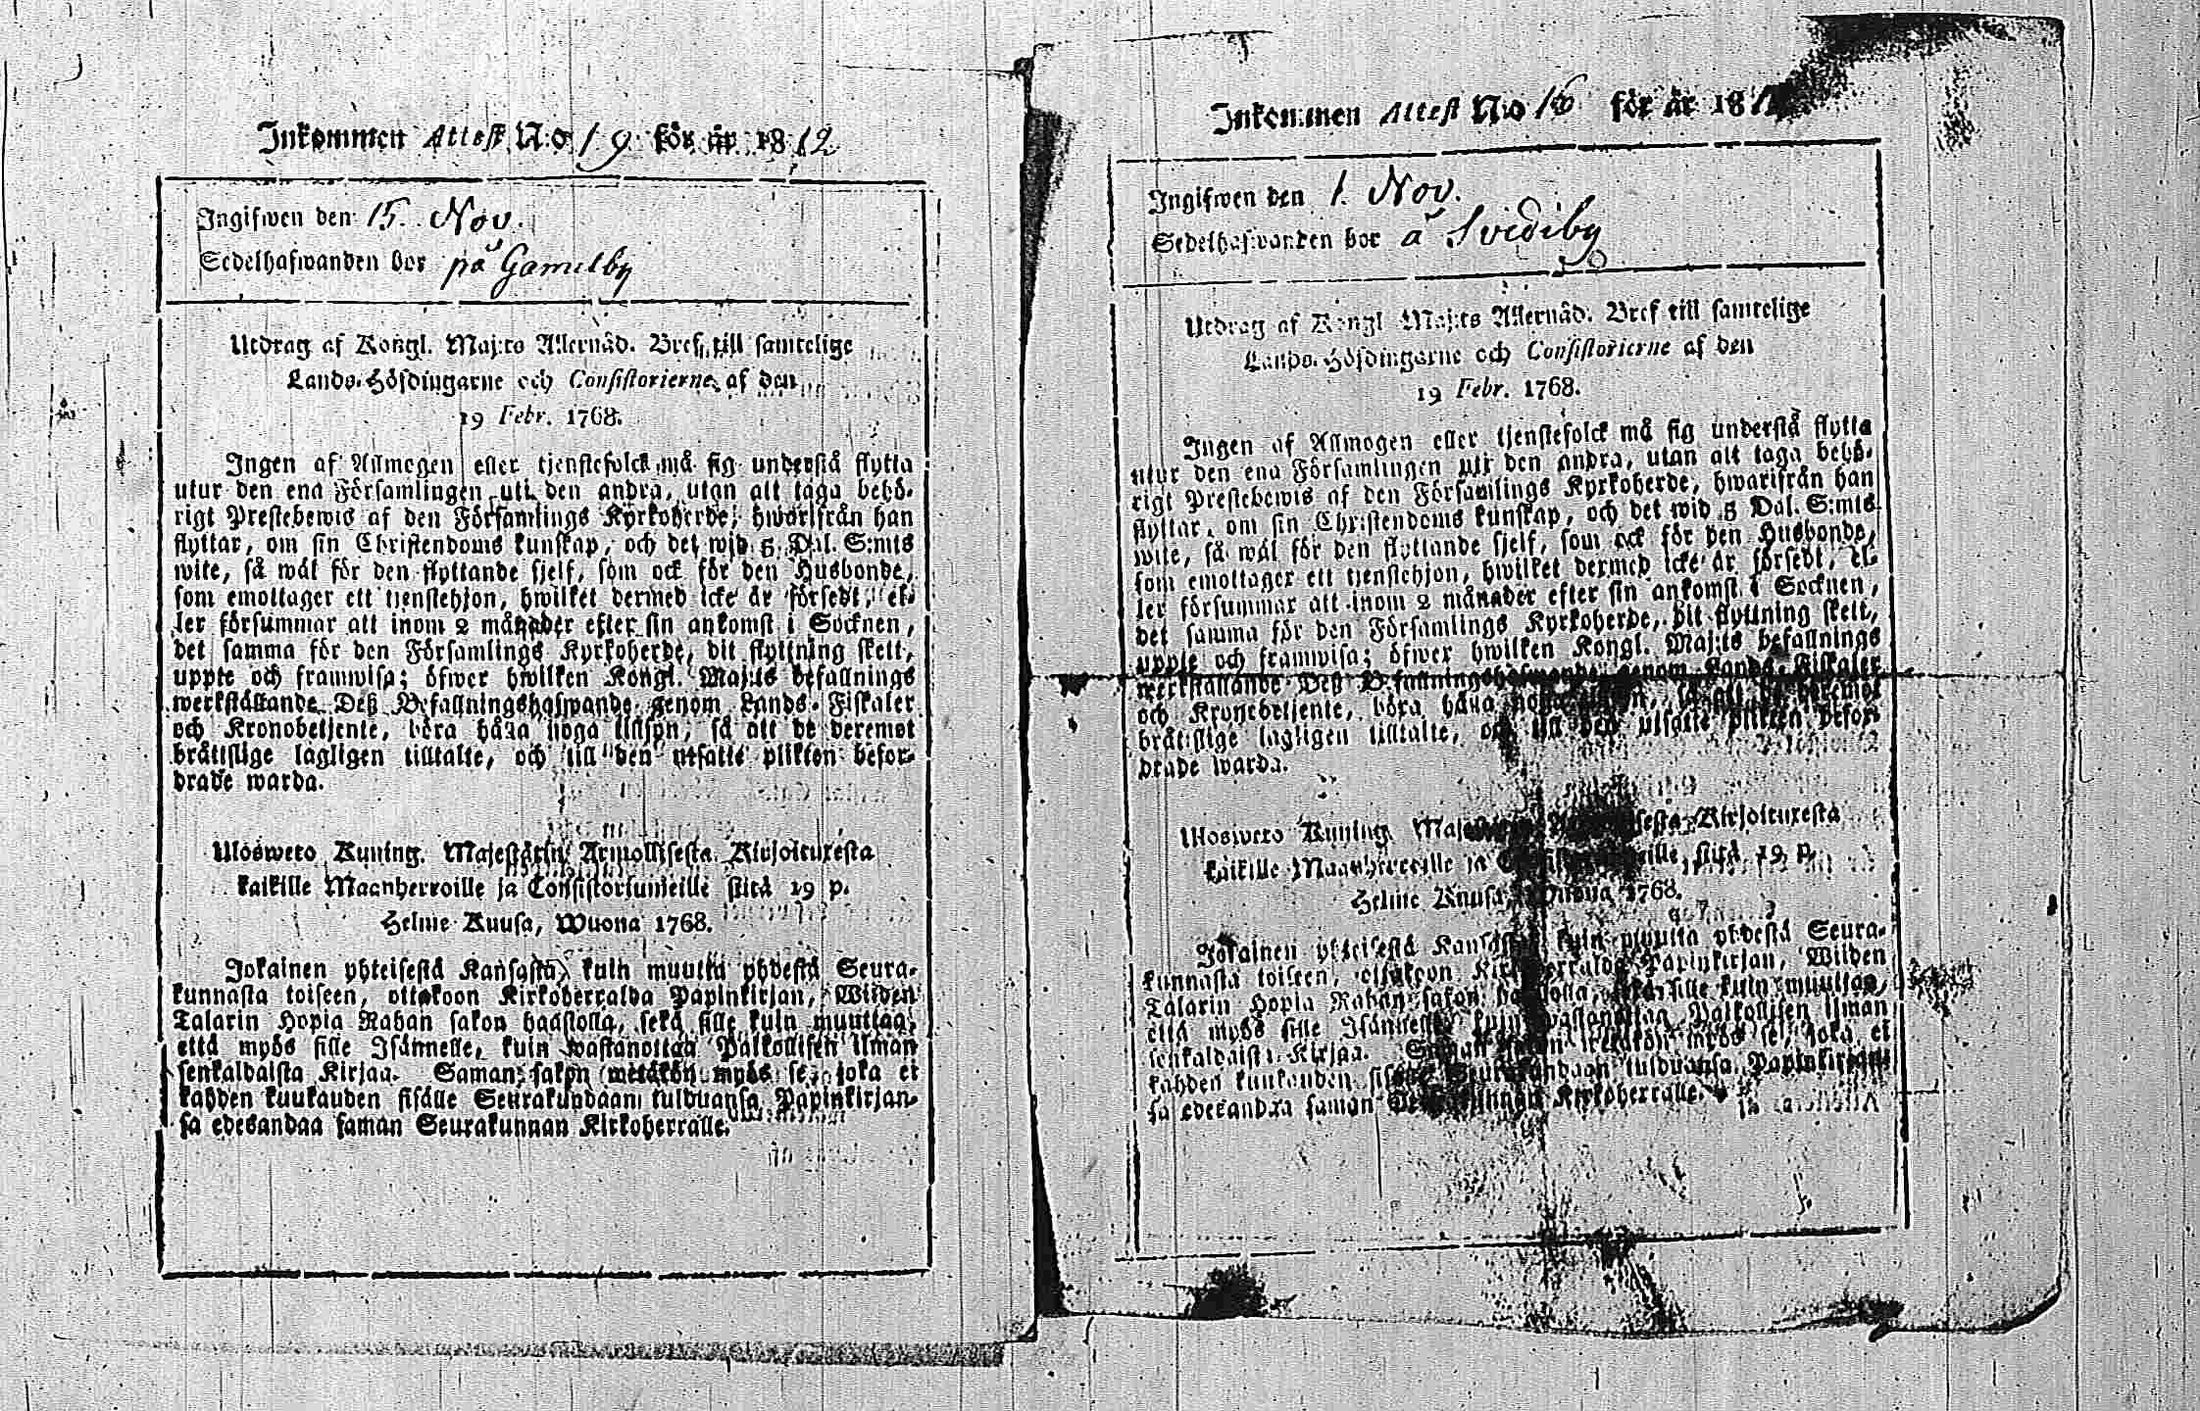 Inkommen Attest N:o 19 för år 1812
Ingifwen den 15. Nov.
Sedelhafwanden bor på Gamelby
Utdrag af Kongl. Maj:ts Allernåd. Bref till samtelige
Lands-Höfdingarne och Consistorierne af den
19 Febr. 1768.
Ingen af Allmogen eller tjenstefolck må sig understå flytta
utur den ena Församlingen uti den andra, utan att taga behö-
rigt Prestebewis af den Församlings Kyrkoherde, hwarifrån han
flyttar, om sin Christendoms kunskap, och det wid 5 Dal. S:mts
wite, så wäl för den flyttande sjelf, som ock för den Husbonde,
som emottager ett tjenstehjon, hwilket dermed icke är försedt, el-
ler försummar att inom 2 månader efter sin ankomst i Socknen,
det samma för den Församlings Kyrkoherde, dit flyttning skett,
uppte och framwisa; öfwer hwilken Kongl. Maj:ts befallnings
werkställande Deß Befallningshafwande genom Lands-Fiskaler
och Kronobetjente, böra hålla noga tillsyn, så att de deremot
bråttslige lagligen tilltalte, och till den utsatte plikten befor-
drade warda.
Ulosweto Kuning. Majestätin Armollisesta Kirjoituxesta
kaikille Maanherroille ja Consistoriumeille siitä 19 p.
Helme Kuusa, Wuona 1768.
Jokainen yhteisestä Kansasta, kuin muutta yhdestä Seura-
kunnasta toiseen, ottakoon Kirkoherralda Papinkirjan, Wiiden
Talarin Hopia Rahan sakon haastolla, sekä sille kuin muuttaa,
että myös sille Isännelle, kuin wastanottaa Palkollisen ilman
senkaldaista Kirjaa. Saman sakon wetäkön myös se, joka ei
kahden kuukauden sisälle Seurakundaan tulduansa Papinkirjan-
sa edesandaa saman Seurakunnan Kirkoherralle.
Inkommen Attest N:o 16 för år 181
Ingifwen den 1. Nov.
Sedelhafwanden bor å Svediby
Utdrag af Kongl Maj:ts Allernåd. Bref till samtelige
Lands-Höfdingarne och Consistorierne af den
19 Febr. 1768.
Ingen af Allmogen eller tjenstefolck må sig understå flytta
utur den ena Församlingen uti den andra, utan att taga behö-
rigt Prestebewis af den Församlings Kyrkoherde, hwarifrån han
flyttar, om sin Christendoms kunskap, och det wid 5 Dal. S:mts
wite, så wäl för den flyttande sjelf, som ock för den Husbonde,
som emottager ett tjenstehjon, hwilket dermed icke är försedt, el-
ler försummar att inom 2 månader efter sin ankomst i Socknen,
det samma för den Församlings Kyrkoherde, dit flyttning skett,
uppte och framwisa; öfwer hwilken Kongl. Maj:ts befallnings
werkställande Deß Befallningshafwande genom Lands-Fiskaler
och Kronobetjente, böra hålla noga så att de deremot
bråttslige lagligen tilltalte, och till den utsatte plikten befor-
drade warda.
Ulosweto Kuning. Kirjoituxesta
kaikille Maanherroille ja siitä 19 p.
Helme Kuusa, Wuona 1768.
Jokainen yhteisestä kuin muutta yhdestä Seura-
kunnasta toiseen, ottakoon Kirkoherralda Papinkirjan, Wiiden
Talarin Hopia Rahan sakon sekä sille kuin muuttaa,
että myös sille Isännelle, kuin wastanottaa Palkollisen ilman
senkaldaista Kirjaa. Saman sakon wetäkön myös se, joka ei
kahden kuukauden Seurakundaan tulduansa Papinkirjan-
sa edesandaa saman Seurakunnan Kirkoherralle.